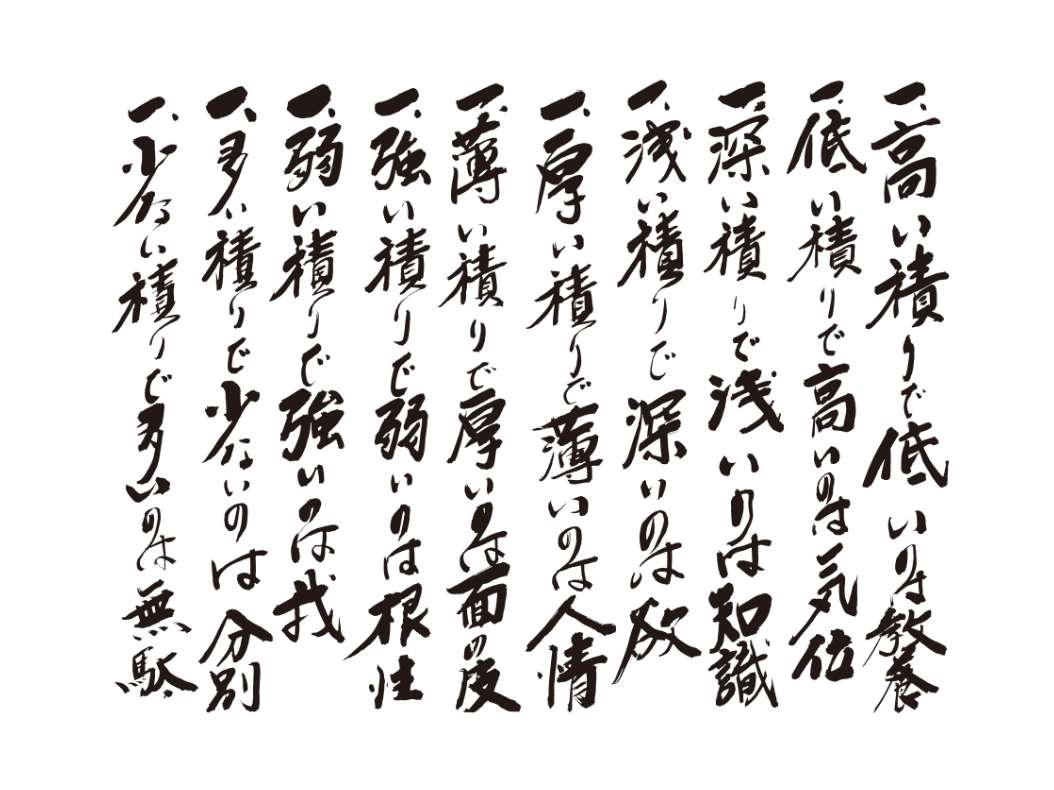 一、高い積りで低いのは教養
一、低い積りで高いのは気位
一、深い積りで浅いのは知識
一、浅い積りで深いのは欲
一、厚い積りで薄いのは人情
一、薄い積りで厚いのは面の皮
一、強い積りで弱いのは根性
一、弱い積りで強いのは我
一、多い積りで少ないのは分別
一、少ない積りで多いのは無駄